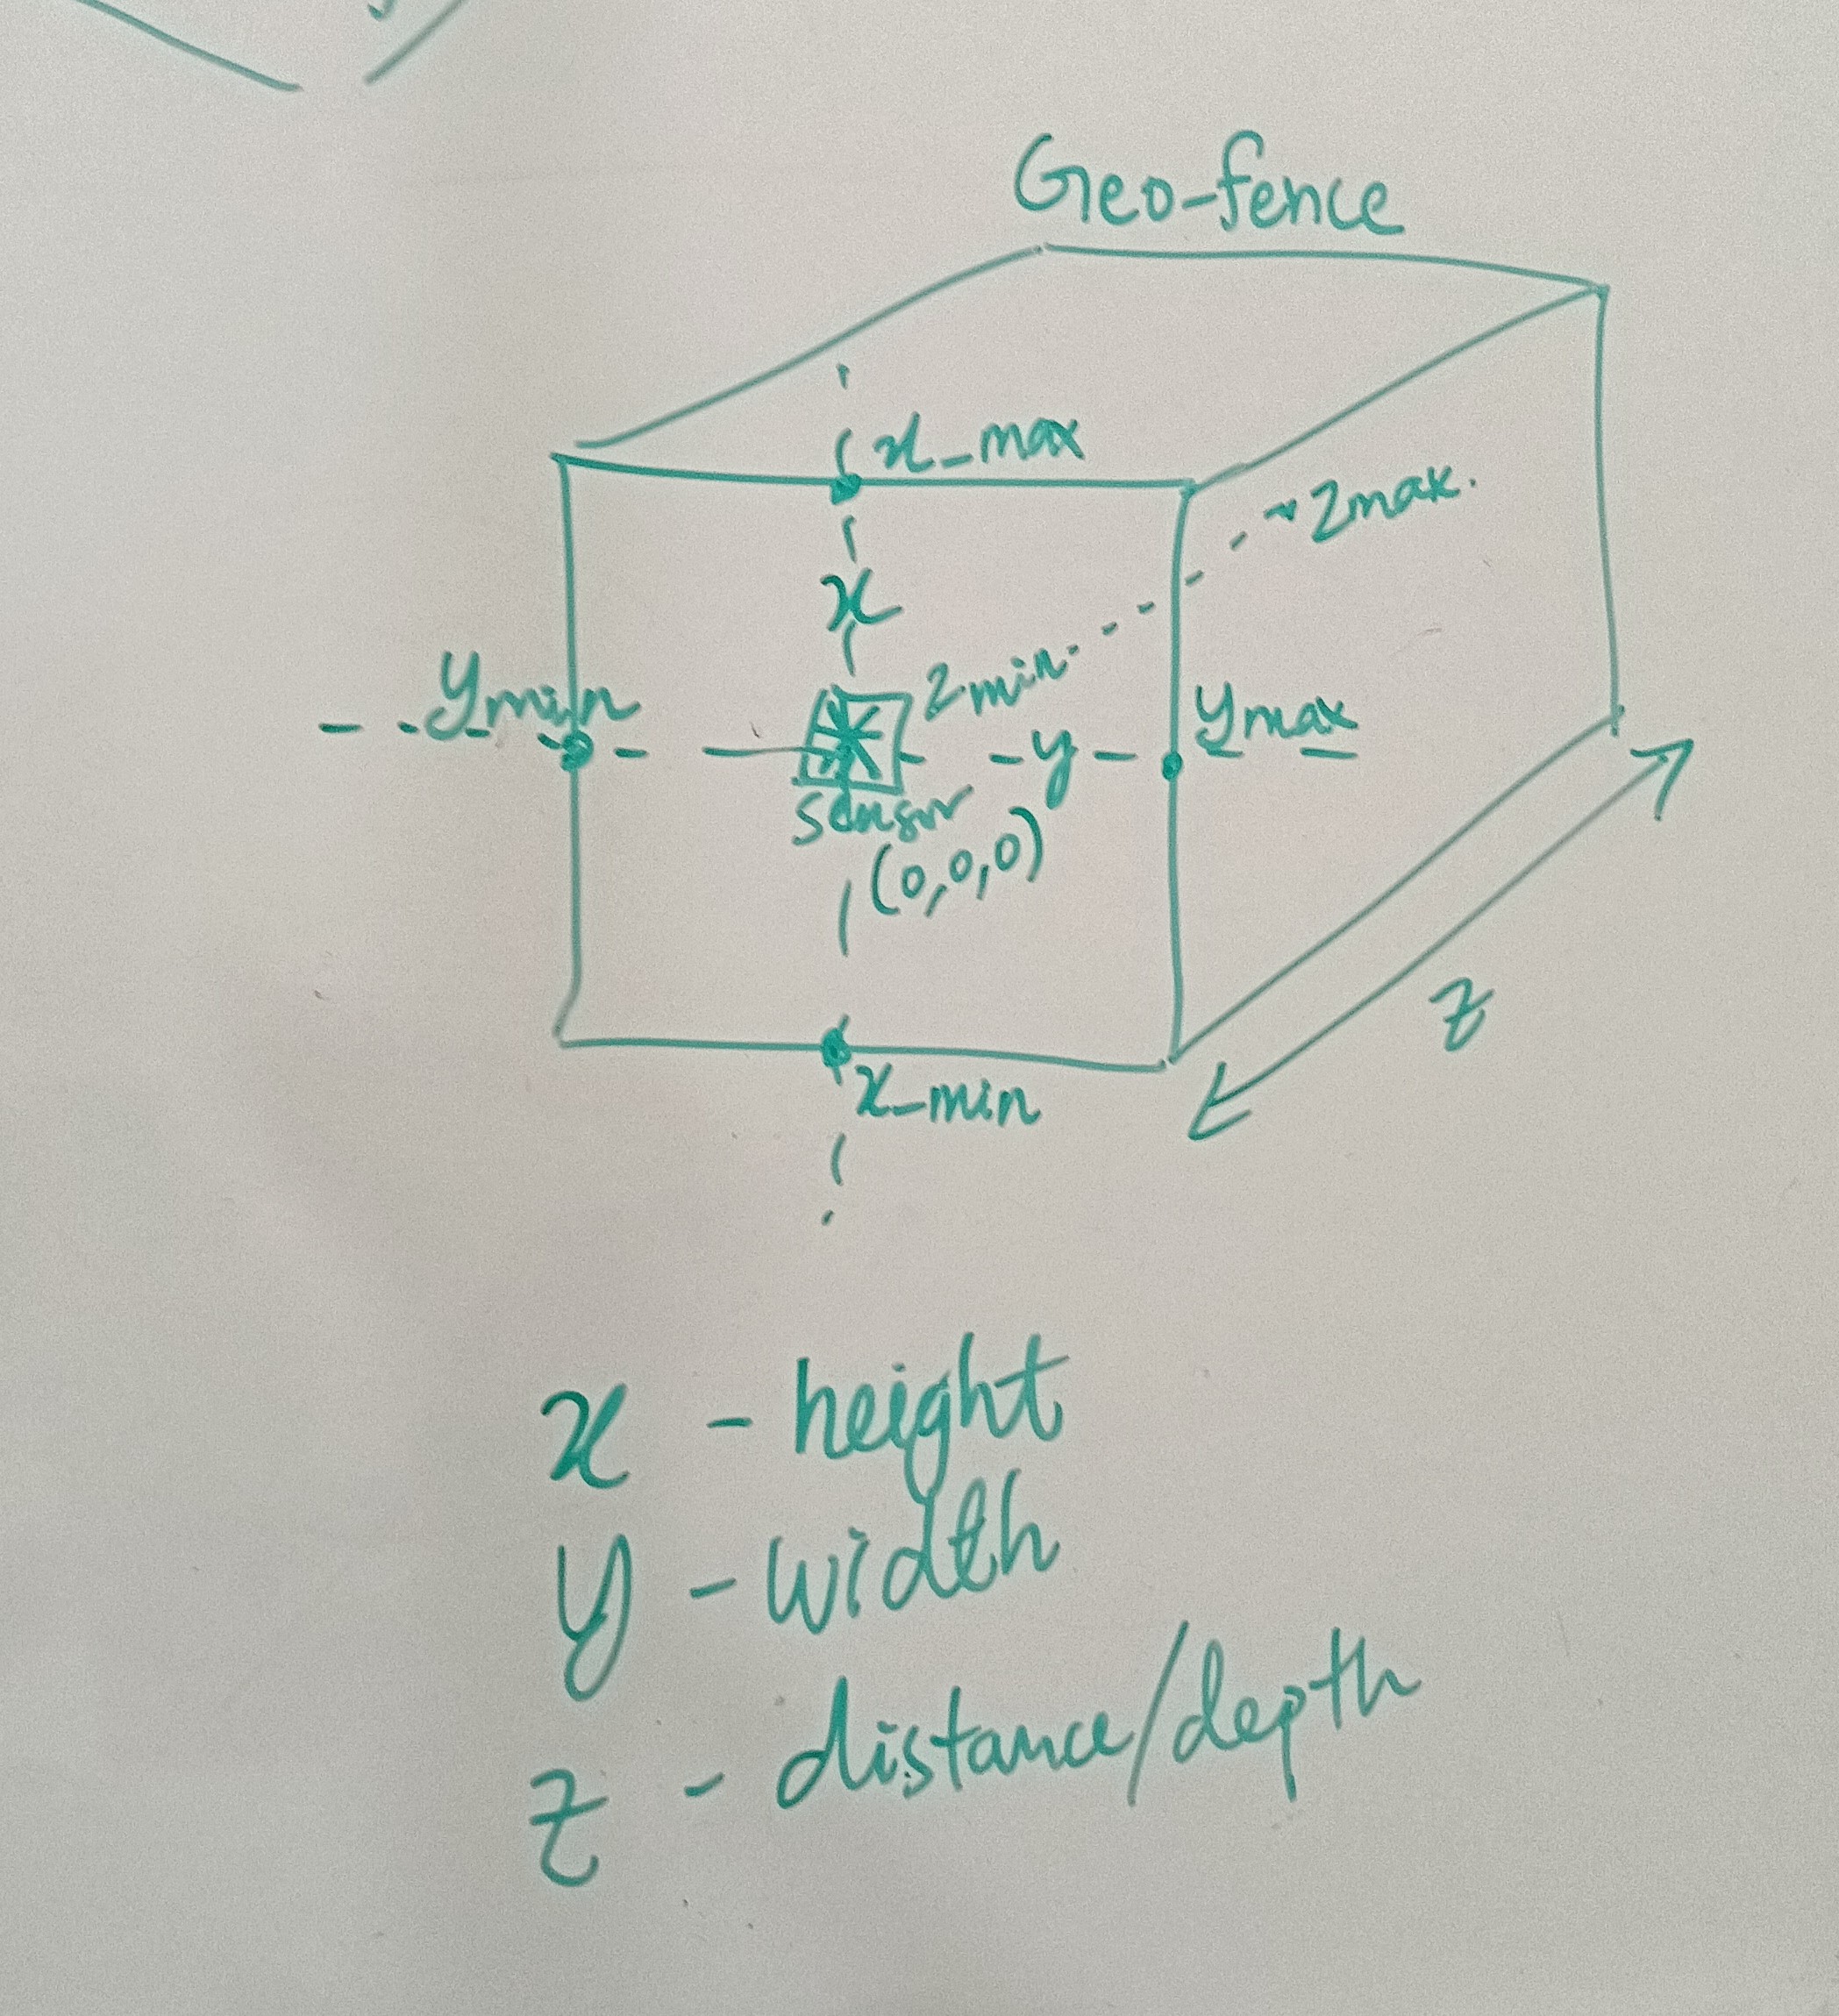 Geo-fence
x_max
zmax.
x
zmin
ymin
y
ymax
sensor
(0,0,0)
z
x_min
x - height
y - width
z - distance/depth